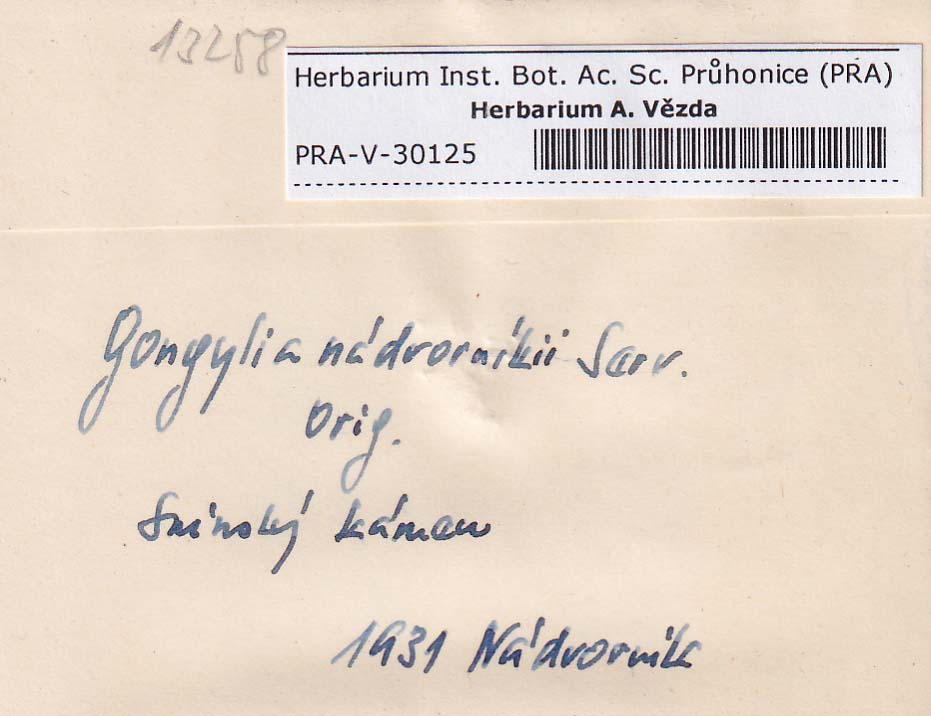 13258
Herbarium Inst. Bot. Ac. Sc. Průhonice (PRA)
Herbarium A. Vězda
PRA-V-30125
Gongylia nádvorníkii Serv.
Orig.
Sninský kámen
1931 Nádvorník